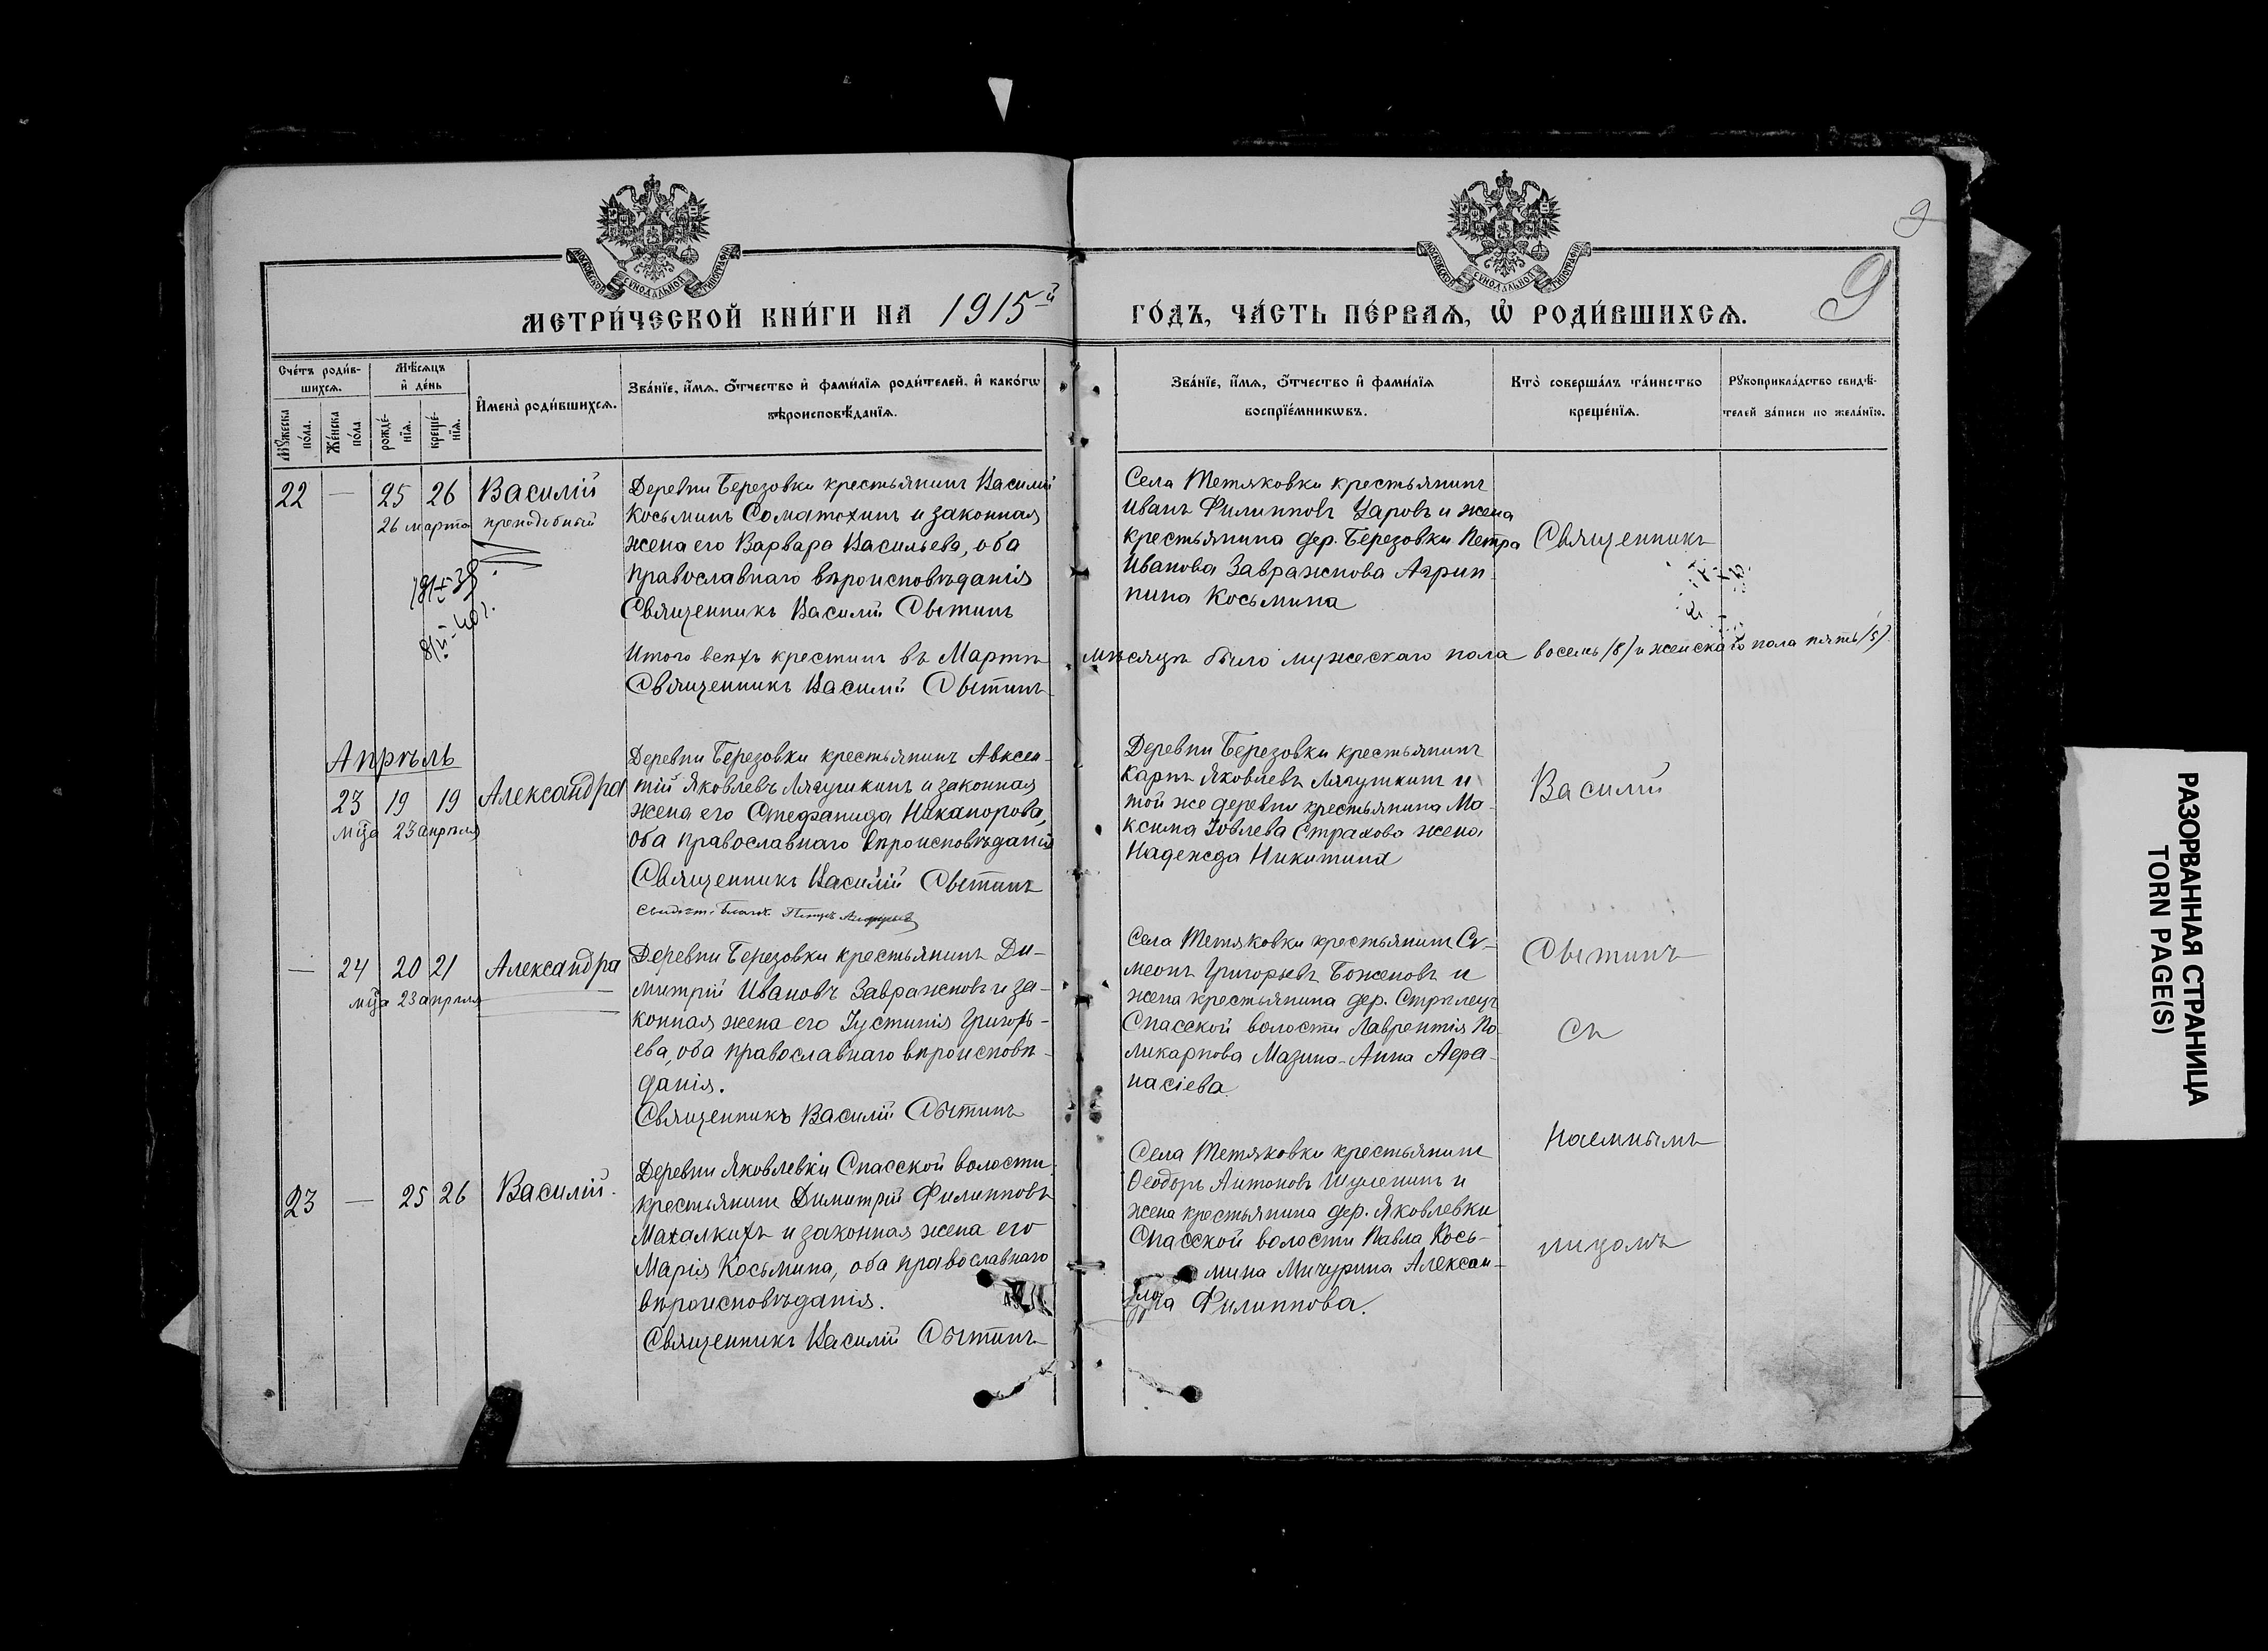 9
МОСКОВСКОЙ СѴНОДАЛЬНОЙ ТИПОГРАФІИ
МОСКОВСКОЙ СѴНОДАЛЬНОЙ ТИПОГРАФІИ
МЕТРИ́ЧЕСКОЙ КНИ́ГИ НА 1915й
ГО́ДЪ, ЧА́СТЬ ПЕ́РВАѦ, Ѡ҆ РОДИ́ВШИХСѦ.
9
Сче́тъ роди́в-
шихсѧ.
Мꙋ́жеска
по́ла.
Же́нска
по́ла.
Мѣ́сѧцъ
и҆ де́нь
рожде́-
нїѧ.
креще́-
нїѧ.
И҆мена̀ роди́вшихсѧ.
Зва́нїе, и҆́мѧ, ѻ҆́тчество и҆ фами́лїѧ роди́телей, и҆ како́гѡ
вѣроисповѣ́данїѧ.
Зва́нїе, и҆́мѧ, ѻ҆́тчество и҆ фами́лїѧ
воспрїе́мникѡвъ.
Кто̀ соверша́лъ та́инство
креще́нїѧ.
Рꙋкоприкла́дство свидѣ́-
телей за́писи по жела́нїю.
22 — 25 26 Василій
26 марта преподобный
Деревни Березовки крестьянинъ Василій
Косьминъ Соматохинъ и законная
жена его Варвара Васильева, оба
православнаго вѣроисповѣданія
Священникъ Василій Сытинъ
Села Тетяковки крестьянинъ
Иванъ Филипповъ Царовъ и жена
крестьянина дер. Березовки Петра
Иванова Завражнова Агрип-
пина Косьмина
Священникъ
Итого всѣхъ крестинъ въ Мартѣ мѣсяцѣ было мужескаго пола восемь /8/ и женскаго пола пять /5/
Священникъ Василій Сытинъ
Апрѣль
23 19 19 Александра
мца 23 апрѣля
Деревни Березовки крестьянинъ Авксен-
тій Яковлевъ Лягушкинъ и законная
жена его Стефанида Никанорова,
оба православнаго вѣроисповѣданія
Священникъ Василій Сытинъ
Деревни Березовки крестьянинъ
Карпъ Яковлевъ Лягушкинъ и
той же деревни крестьянина Ма-
ксима Іовлева Страхова жена
Надежда Никитина
Василій
— 24 20 21 Александра
мца 23 апрѣля
Деревни Березовки крестьянинъ Ди-
митрій Ивановъ Завражновъ и за-
конная жена его Іустинія Григорь-
ева, оба православнаго вѣроисповѣ-
данія.
Священникъ Василій Сытинъ
Села Тетяковки крестьянинъ Сѵ-
меонъ Григорьевъ Боженовъ и
жена крестьянина дер. Стрѣлецъ
Спасской волости Лаврентія По-
ликарпова Мазина - Анна Афа-
насіева
Сытинъ
Съ
23 — 25 26 Василій.
Деревни Яковлевки Спасской волости
крестьянинъ Димитрій Филипповъ
Махалкихъ и законная жена его
Марія Косьмина, оба православнаго
вѣроисповѣданія.
Священникъ Василій Сытинъ
Села Тетяковки крестьянинъ
Ѳеодоръ Антоновъ Шуленинъ и
жена крестьянина дер. Яковлевки
Спасской волости Павла Кось-
мина Мичурина Алексан-
дра Филиппова.
Наемнымъ
РАЗОРВАННАЯ СТРАНИЦА
TORN PAGE(S)